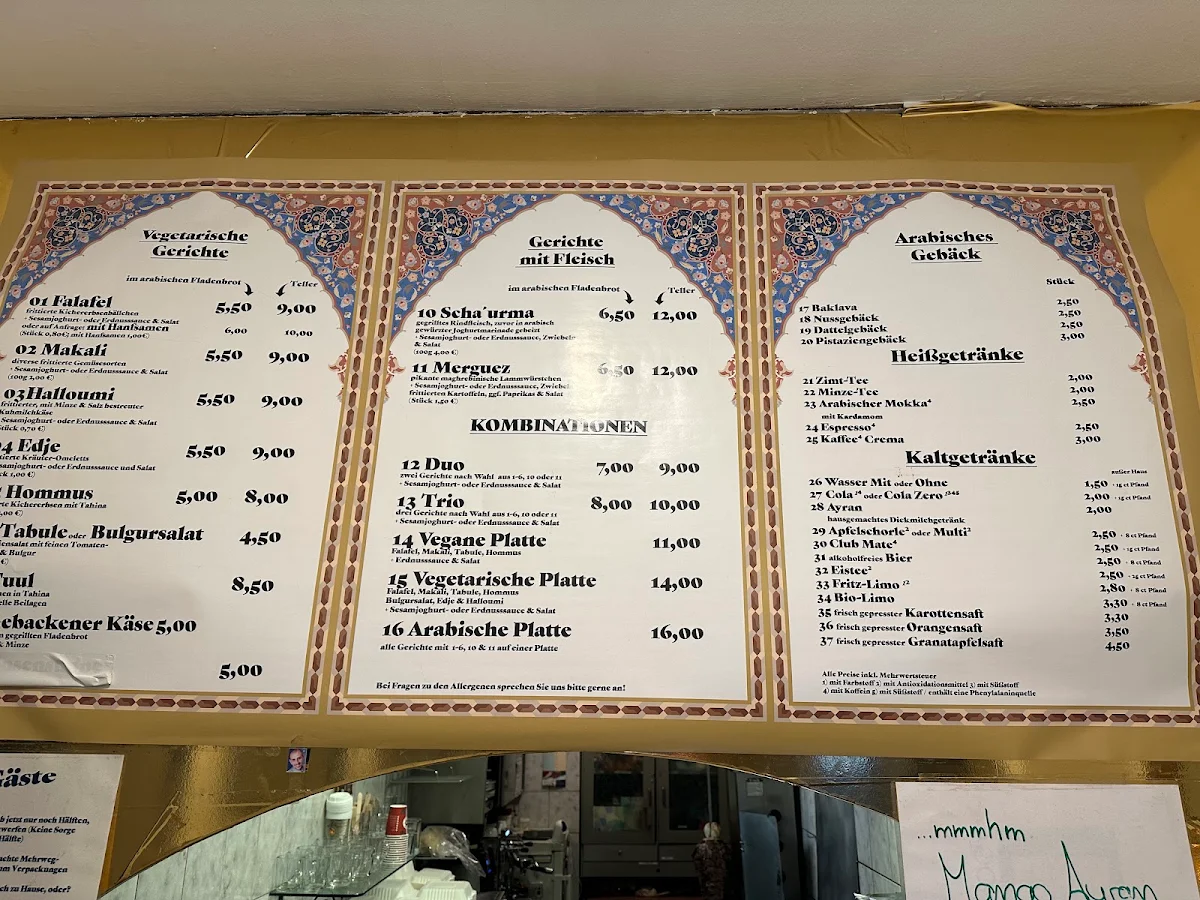 Vegetarische
Gerichte
im arabischen Fladenbrot Teller
01 Falafel 5,50 9,00
frittierte Kichererbsenbällchen
· Sesamjoghurt- oder Erdnusssauce & Salat
oder auf Anfrage: mit Hanfsamen 6,00 10,00
(Stück 0,80€; mit Hanfsamen 1,00€)
02 Makali 5,50 9,00
diverse frittierte Gemüsesorten
· Sesamjoghurt- oder Erdnusssauce & Salat
(100g 2,00 €)
03 Halloumi 5,50 9,00
frittierter, mit Minze & Salz bestreuter
Kuhmilchkäse
Sesamjoghurt- oder Erdnusssauce & Salat
(Stück 0,70 €)
04 Edje 5,50 9,00
Kräuter-Omeletts
Sesamjoghurt- oder Erdnusssauce und Salat
1,00 €)
Hommus 5,00 8,00
Kichererbsen mit Tahina
Tabule oder Bulgursalat 4,50
mit feinen Tomaten-
& Bulgur
€)
8,50
in Tahina
Beilagen
ebackener Käse 5,00
gegrillten Fladenbrot
& Minze
5,00
Gerichte
mit Fleisch
im arabischen Fladenbrot Teller
10 Scha´urma 6,50 12,00
gegrilltes Rindfleisch, zuvor in arabisch
gewürzter Joghurtmarinade gebeizt
· Sesamjoghurt- oder Erdnusssauce, Zwiebeln
& Salat
(100g 4,00 €)
11 Merguez 6,50 12,00
pikante maghrebinische Lammwürstchen
· Sesamjoghurt- oder Erdnusssauce, Zwiebel
frittierten Kartoffeln, ggf. Paprikas & Salat
(Stück 1,50 €)
KOMBINATIONEN
12 Duo 7,00 9,00
zwei Gerichte nach Wahl aus 1-6, 10 oder 11
· Sesamjoghurt- oder Erdnusssauce & Salat
13 Trio 8,00 10,00
drei Gerichte nach Wahl aus 1-6, 10 oder 11
· Sesamjoghurt- oder Erdnusssauce & Salat
14 Vegane Platte 11,00
Falafel, Makali, Tabule, Hommus
· Erdnusssauce & Salat
15 Vegetarische Platte 14,00
Falafel, Makali, Tabule, Hommus
Bulgursalat, Edje & Halloumi
· Sesamjoghurt- oder Erdnusssauce & Salat
16 Arabische Platte 16,00
alle Gerichte mit 1-6, 10 & 11 auf einer Platte
Bei Fragen zu den Allergenen sprechen Sie uns bitte gerne an!
Arabisches
Gebäck
Stück
17 Baklava 2,50
18 Nussgebäck 2,50
19 Dattelgebäck 2,50
20 Pistaziengebäck 3,00
Heißgetränke
21 Zimt-Tee 2,00
22 Minze-Tee 2,00
23 Arabischer Mokka⁴ 2,50
mit Kardamom
24 Espresso⁴ 2,50
25 Kaffee⁴ Crema 3,00
Kaltgetränke
außer Haus
26 Wasser Mit oder Ohne 1,50 · 15 ct Pfand
27 Cola oder Cola Zero 2,00 · 15 ct Pfand
28 Ayran 2,00
hausgemachtes Dickmilchgetränk
29 Apfelschorle² oder Multi² 2,50 · 8 ct Pfand
30 Club Mate⁴ 2,50 · 15 ct Pfand
31 alkoholfreies Bier 2,50 · 8 ct Pfand
32 Eistee² 2,50 · 25 ct Pfand
33 Fritz-Limo 2,80 · 8 ct Pfand
34 Bio-Limo 3,30 · 8 ct Pfand
35 frisch gepresster Karottensaft 3,30
36 frisch gepresster Orangensaft 3,50
37 frisch gepresster Granatapfelsaft 4,50
Alle Preise inkl. Mehrwertsteuer
1) mit Farbstoff 2) mit Antioxidationsmittel 3) mit Süßstoff
4) mit Koffein 5) mit Süßstoff / enthält eine Phenylalaninquelle
Gäste
b jetzt nur noch Hälften,
werfen (Keine Sorge
Hälfte)
achte Mehrweg-
um Verpackungen
ch zu Hause, oder?
...mmmhm
Mango Ayran